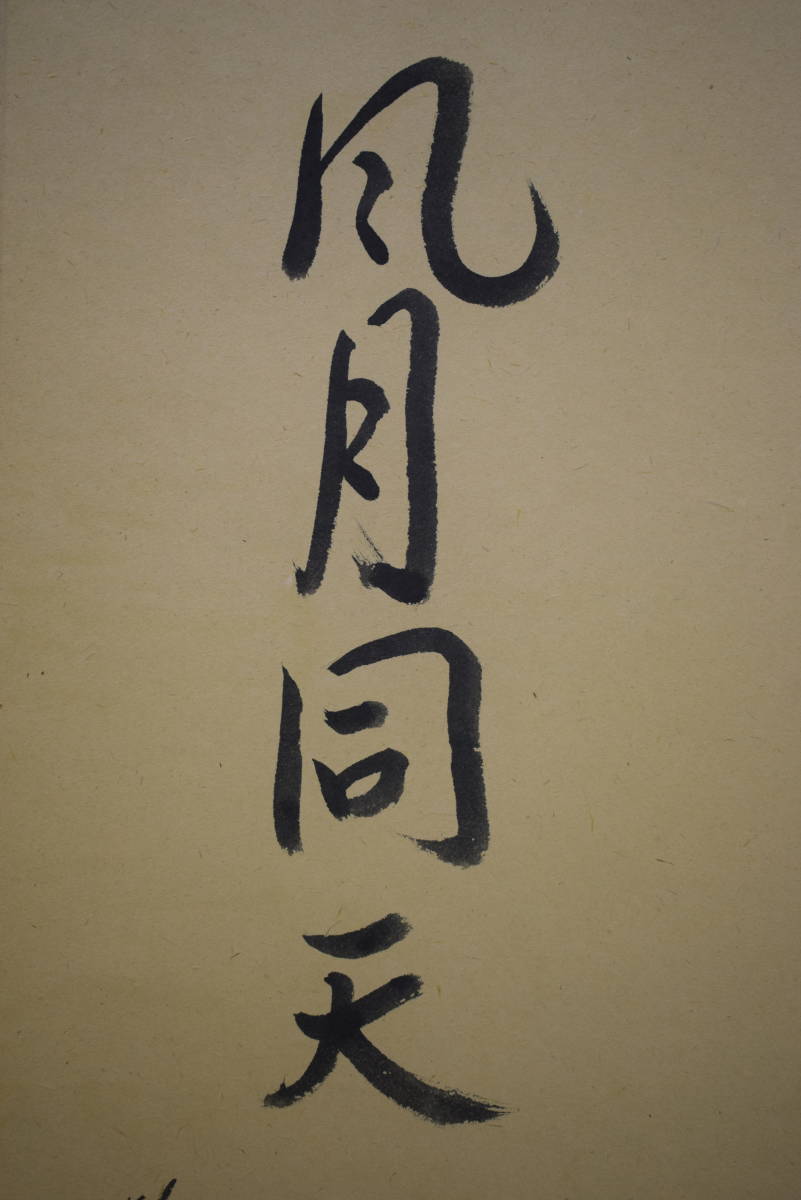 風月同天